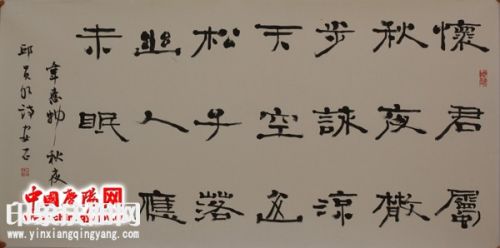 懷君屬
秋夜散
步詠涼
天空山
松子落
幽人應
未眠
韋應物秋夜
邱員外詩
中国庆阳网
印象庆阳网
www.yinxiangqingyang.com